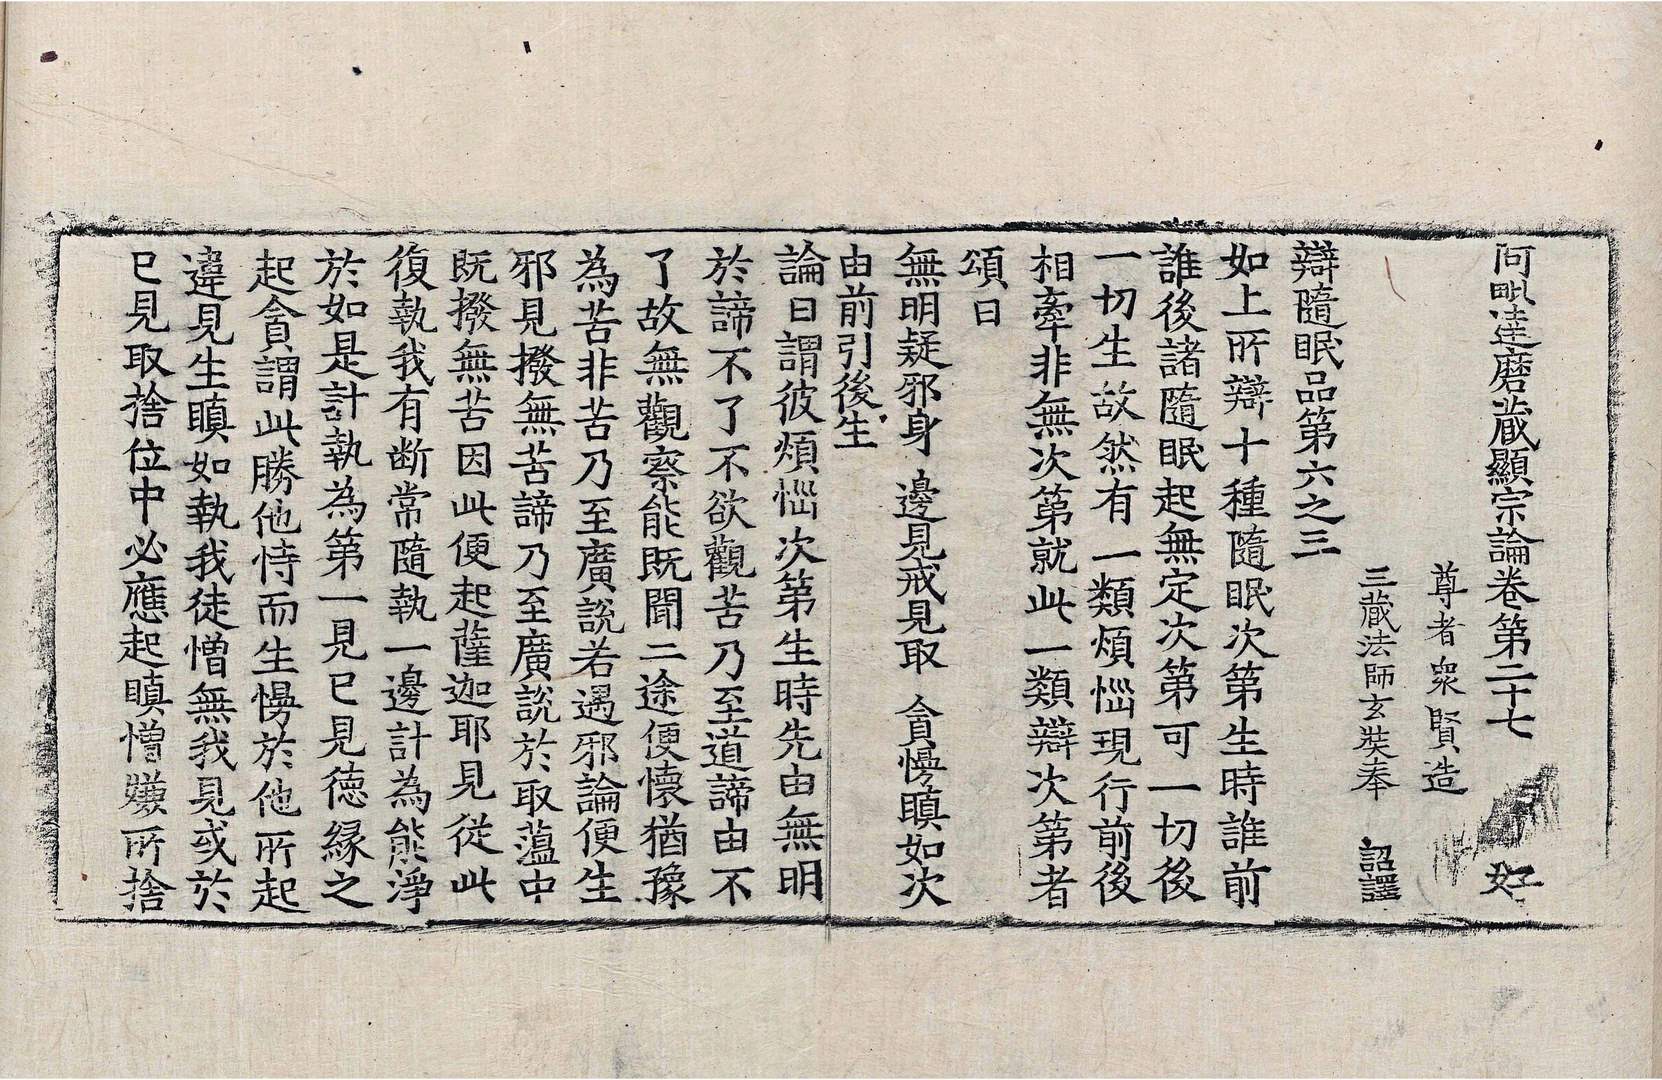 阿毗達磨藏顯宗論卷第二十七 好
尊者衆賢造
三藏法師玄奘奉 詔譯
辯隨眠品第六之三
如上所辯十種隨眠次第生時誰前
誰後諸隨眠起無定次第可一切後
一切生故然有一類煩惱現行前後
相牽非無次第就此一類辯次第者
頌曰
無明疑邪身 邊見戒見取 貪慢瞋如次
由前引後生
論曰謂彼煩惱次第生時先由無明
於諦不了不欲觀苦乃至道諦由不
了故無觀察能既聞二途便懷猶豫
為苦非苦乃至廣說若遇邪論便生
邪見撥無苦諦乃至廣說於取蘊中
既撥無苦因此便起薩迦耶見從此
復執我有斷常隨執一邊計為能淨
於如是計執為第一見已見德緣之
起貪謂此勝他恃而生慢於他所起
違見生瞋如執我徒憎無我見或於
已見取捨位中必應起瞋憎嫌所捨